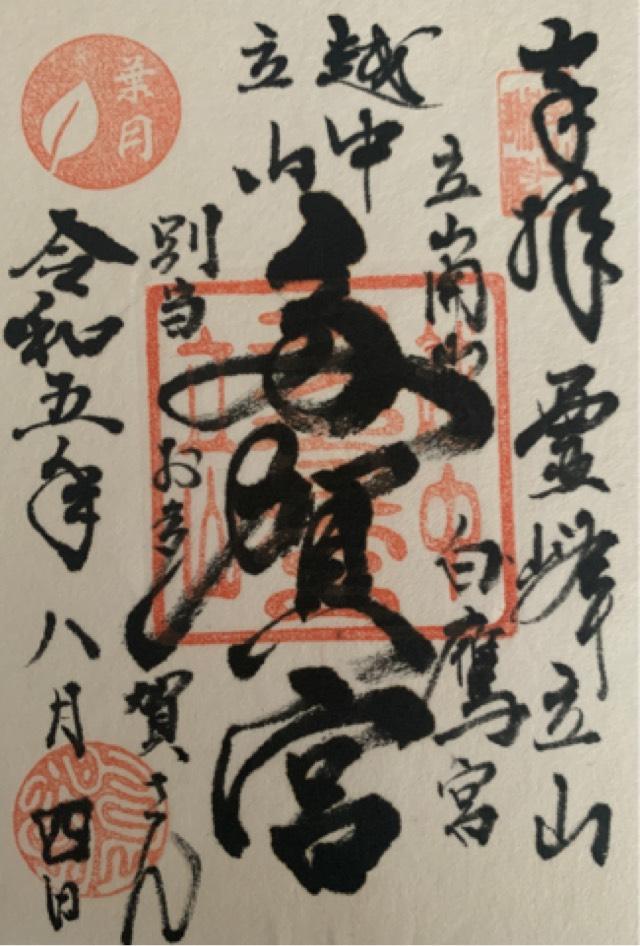 奉拝 霊峰立山
立山開山 白鷹宮
越中
立山
多賀宮
別当 お多賀さん
令和五年 八月 四日
葉月